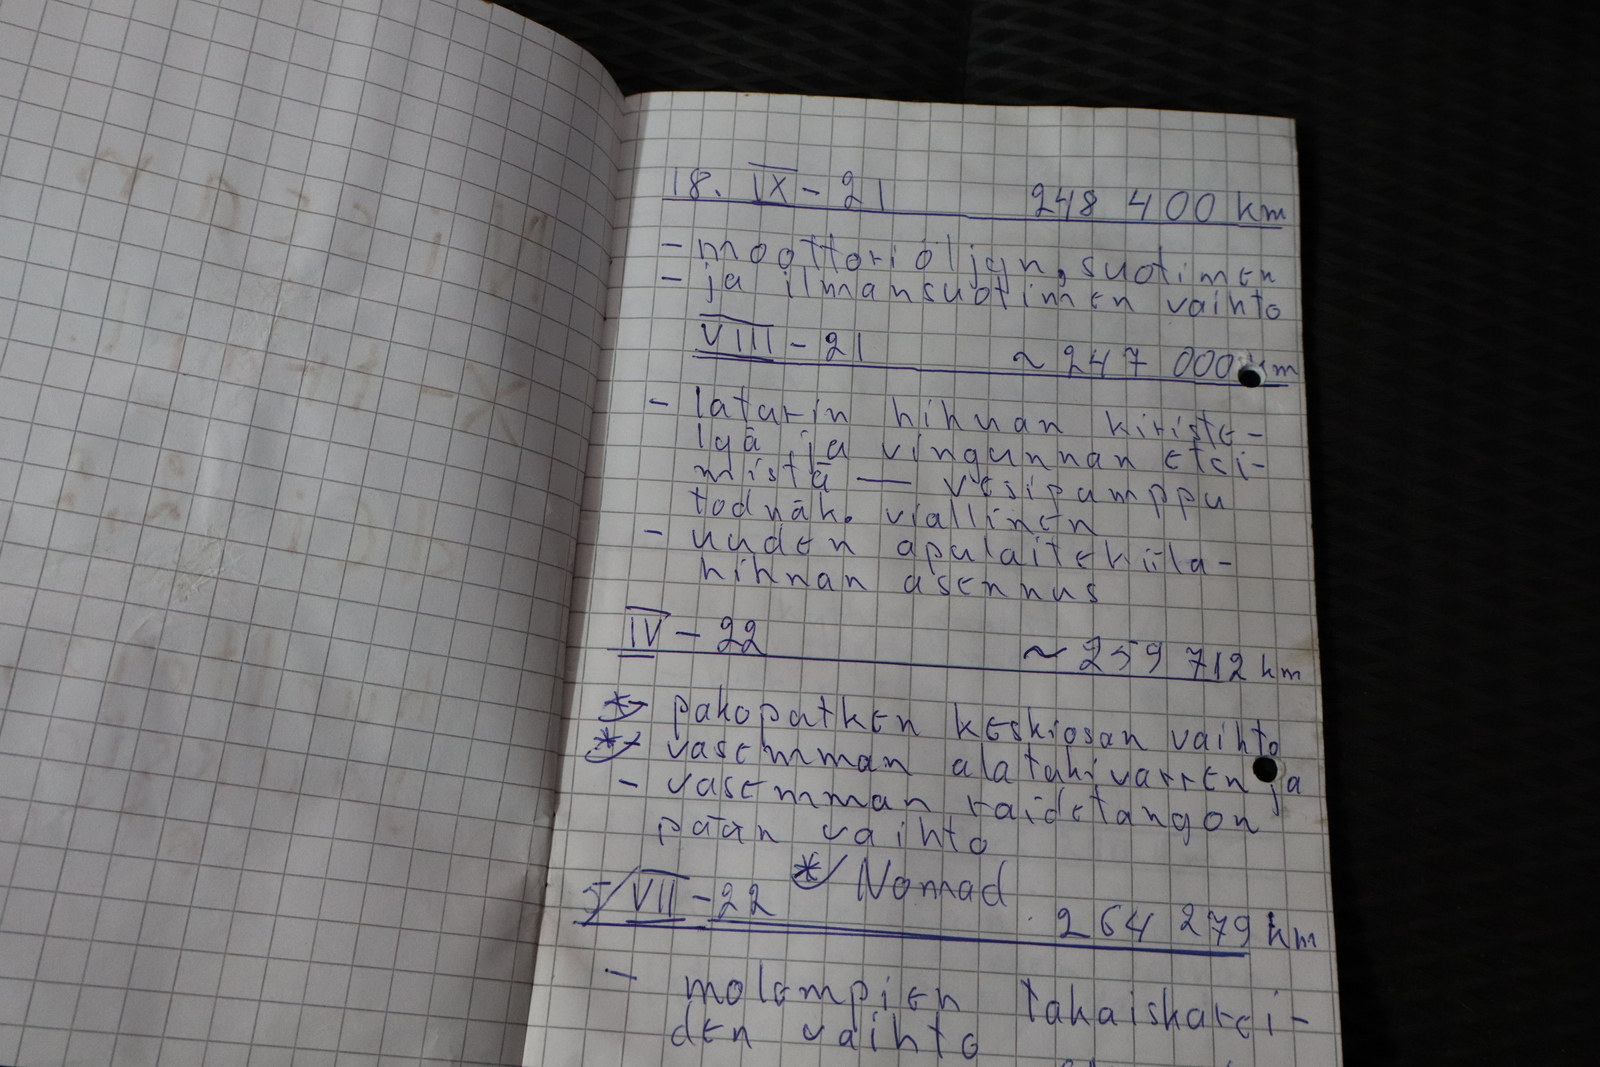 18. IX - 21 248 400 km
- moottoriöljyn, suotimen
- ja ilmansuotimen vaihto
VIII - 21 ~ 247 000 km
- laturin hihnan kiriste-
lyä ja vingunnan etsi-
mistä — vesipumppu
todnäk. viallinen
- uuden apulaitekiila-
hihnan asennus
IV - 22 ~ 259 712 km
* - pakoputken keskiosan vaihto
* - vasemman alatukivarren ja
- vasemman raidetangon
pään vaihto
* Nomad
5/VII - 22 264 279 km
- molempien takaiskarei-
den vaihto